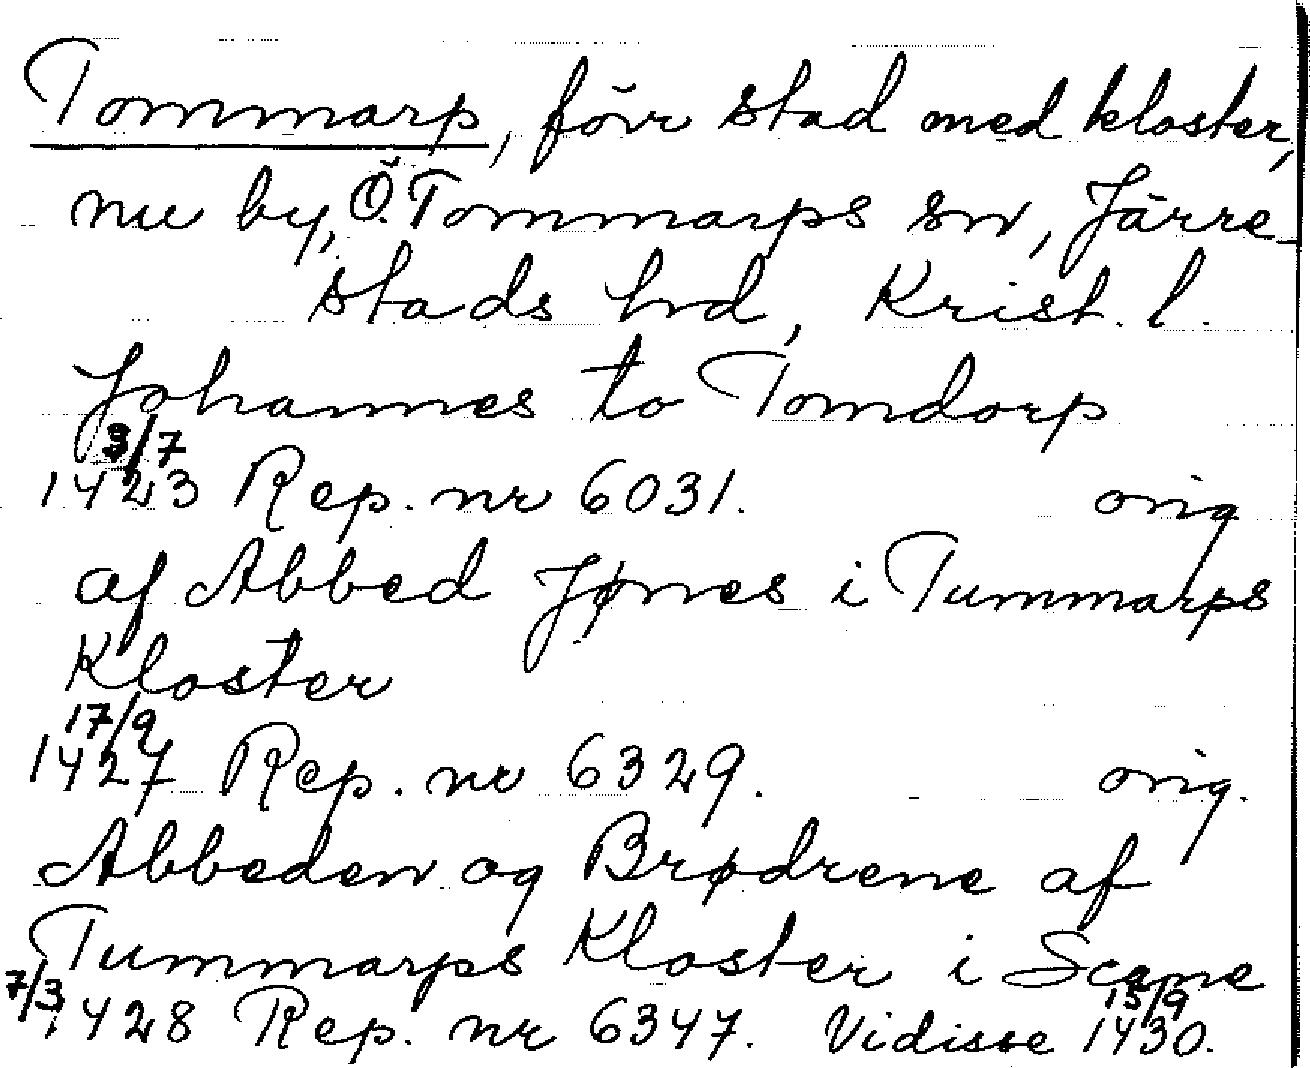 Tommarp, förr stad med kloster,
nu by, Ö. Tommarps sn, Järre-
stads hd, Krist. l.
Johannes to Tomdorp
3/7
1423 Rep. nr 6031. orig
af Abbed Jønes i Tummarps
Kloster
17/9
1427 Rep. nr 6329. orig.
Abbeden og Brødrene af
Tummarps Kloster i Scane
7/3 1428 Rep. nr 6347. Vidisse 15/9 1430.